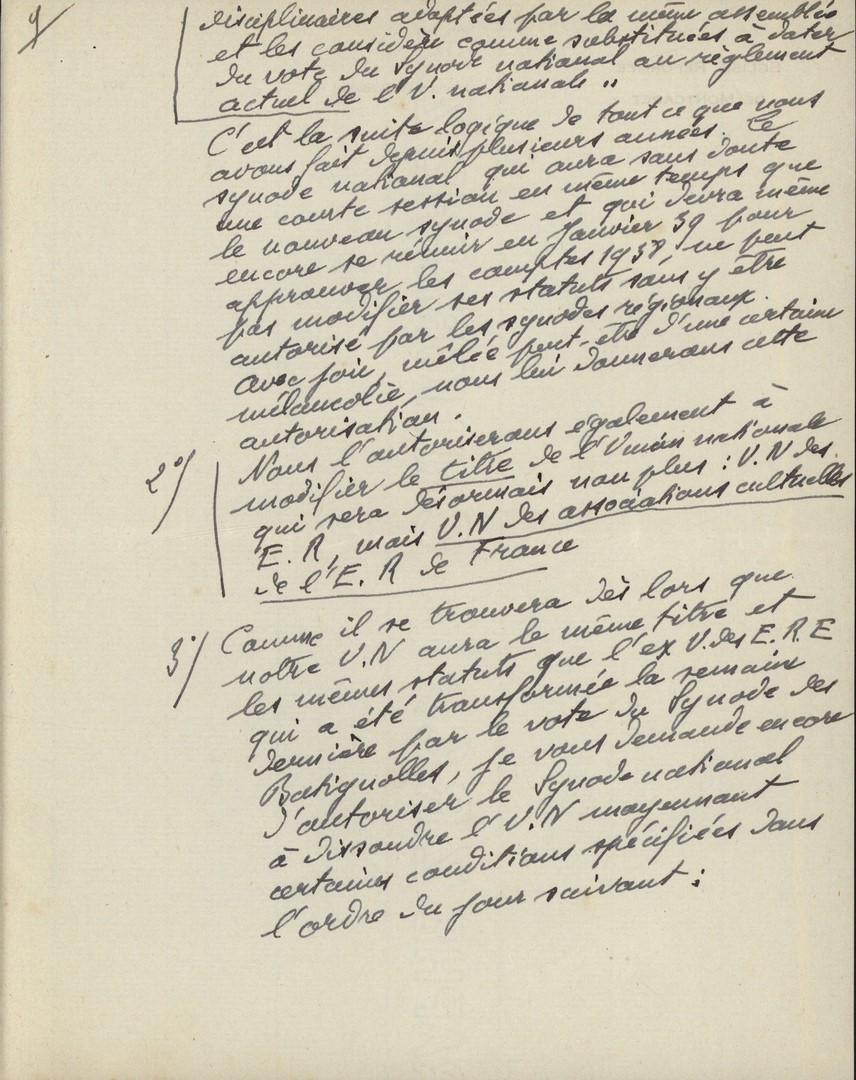 9/
disciplinaires adoptées par la même assemblée
et les considère comme substituées à dater
du vote du Synode national au règlement
actuel de l'U. nationale "
C'est la suite logique de tout ce que nous
avons fait depuis plusieurs années. Le
synode national qui aura sans doute
une courte session en même temps que
le nouveau synode et qui devra même
encore se réunir en Janvier 39 pour
approuver les comptes 1938, ne peut
pas modifier ses statuts sans y être
autorisé par les synodes régionaux.
Avec joie, mêlée peut-être d'une certaine
mélancolie, nous lui donnerons cette
autorisation.
2°/ Nous l'autoriserons également à
modifier le titre de l'Union nationale
qui sera désormais non plus : U.N des
E. R, mais U.N des associations cultuelles
de l'E. R de France
3°/ Comme il se trouvera dès lors que
notre U.N aura le même titre et
les mêmes statuts que l'ex U.des E. R E
qui a été transformée la semaine
dernière par le vote du Synode des
Batignolles, je vous demande encore
d'autoriser le Synode national
à dissoudre l'U.N moyennant
certaines conditions spécifiées dans
l'ordre du jour suivant :